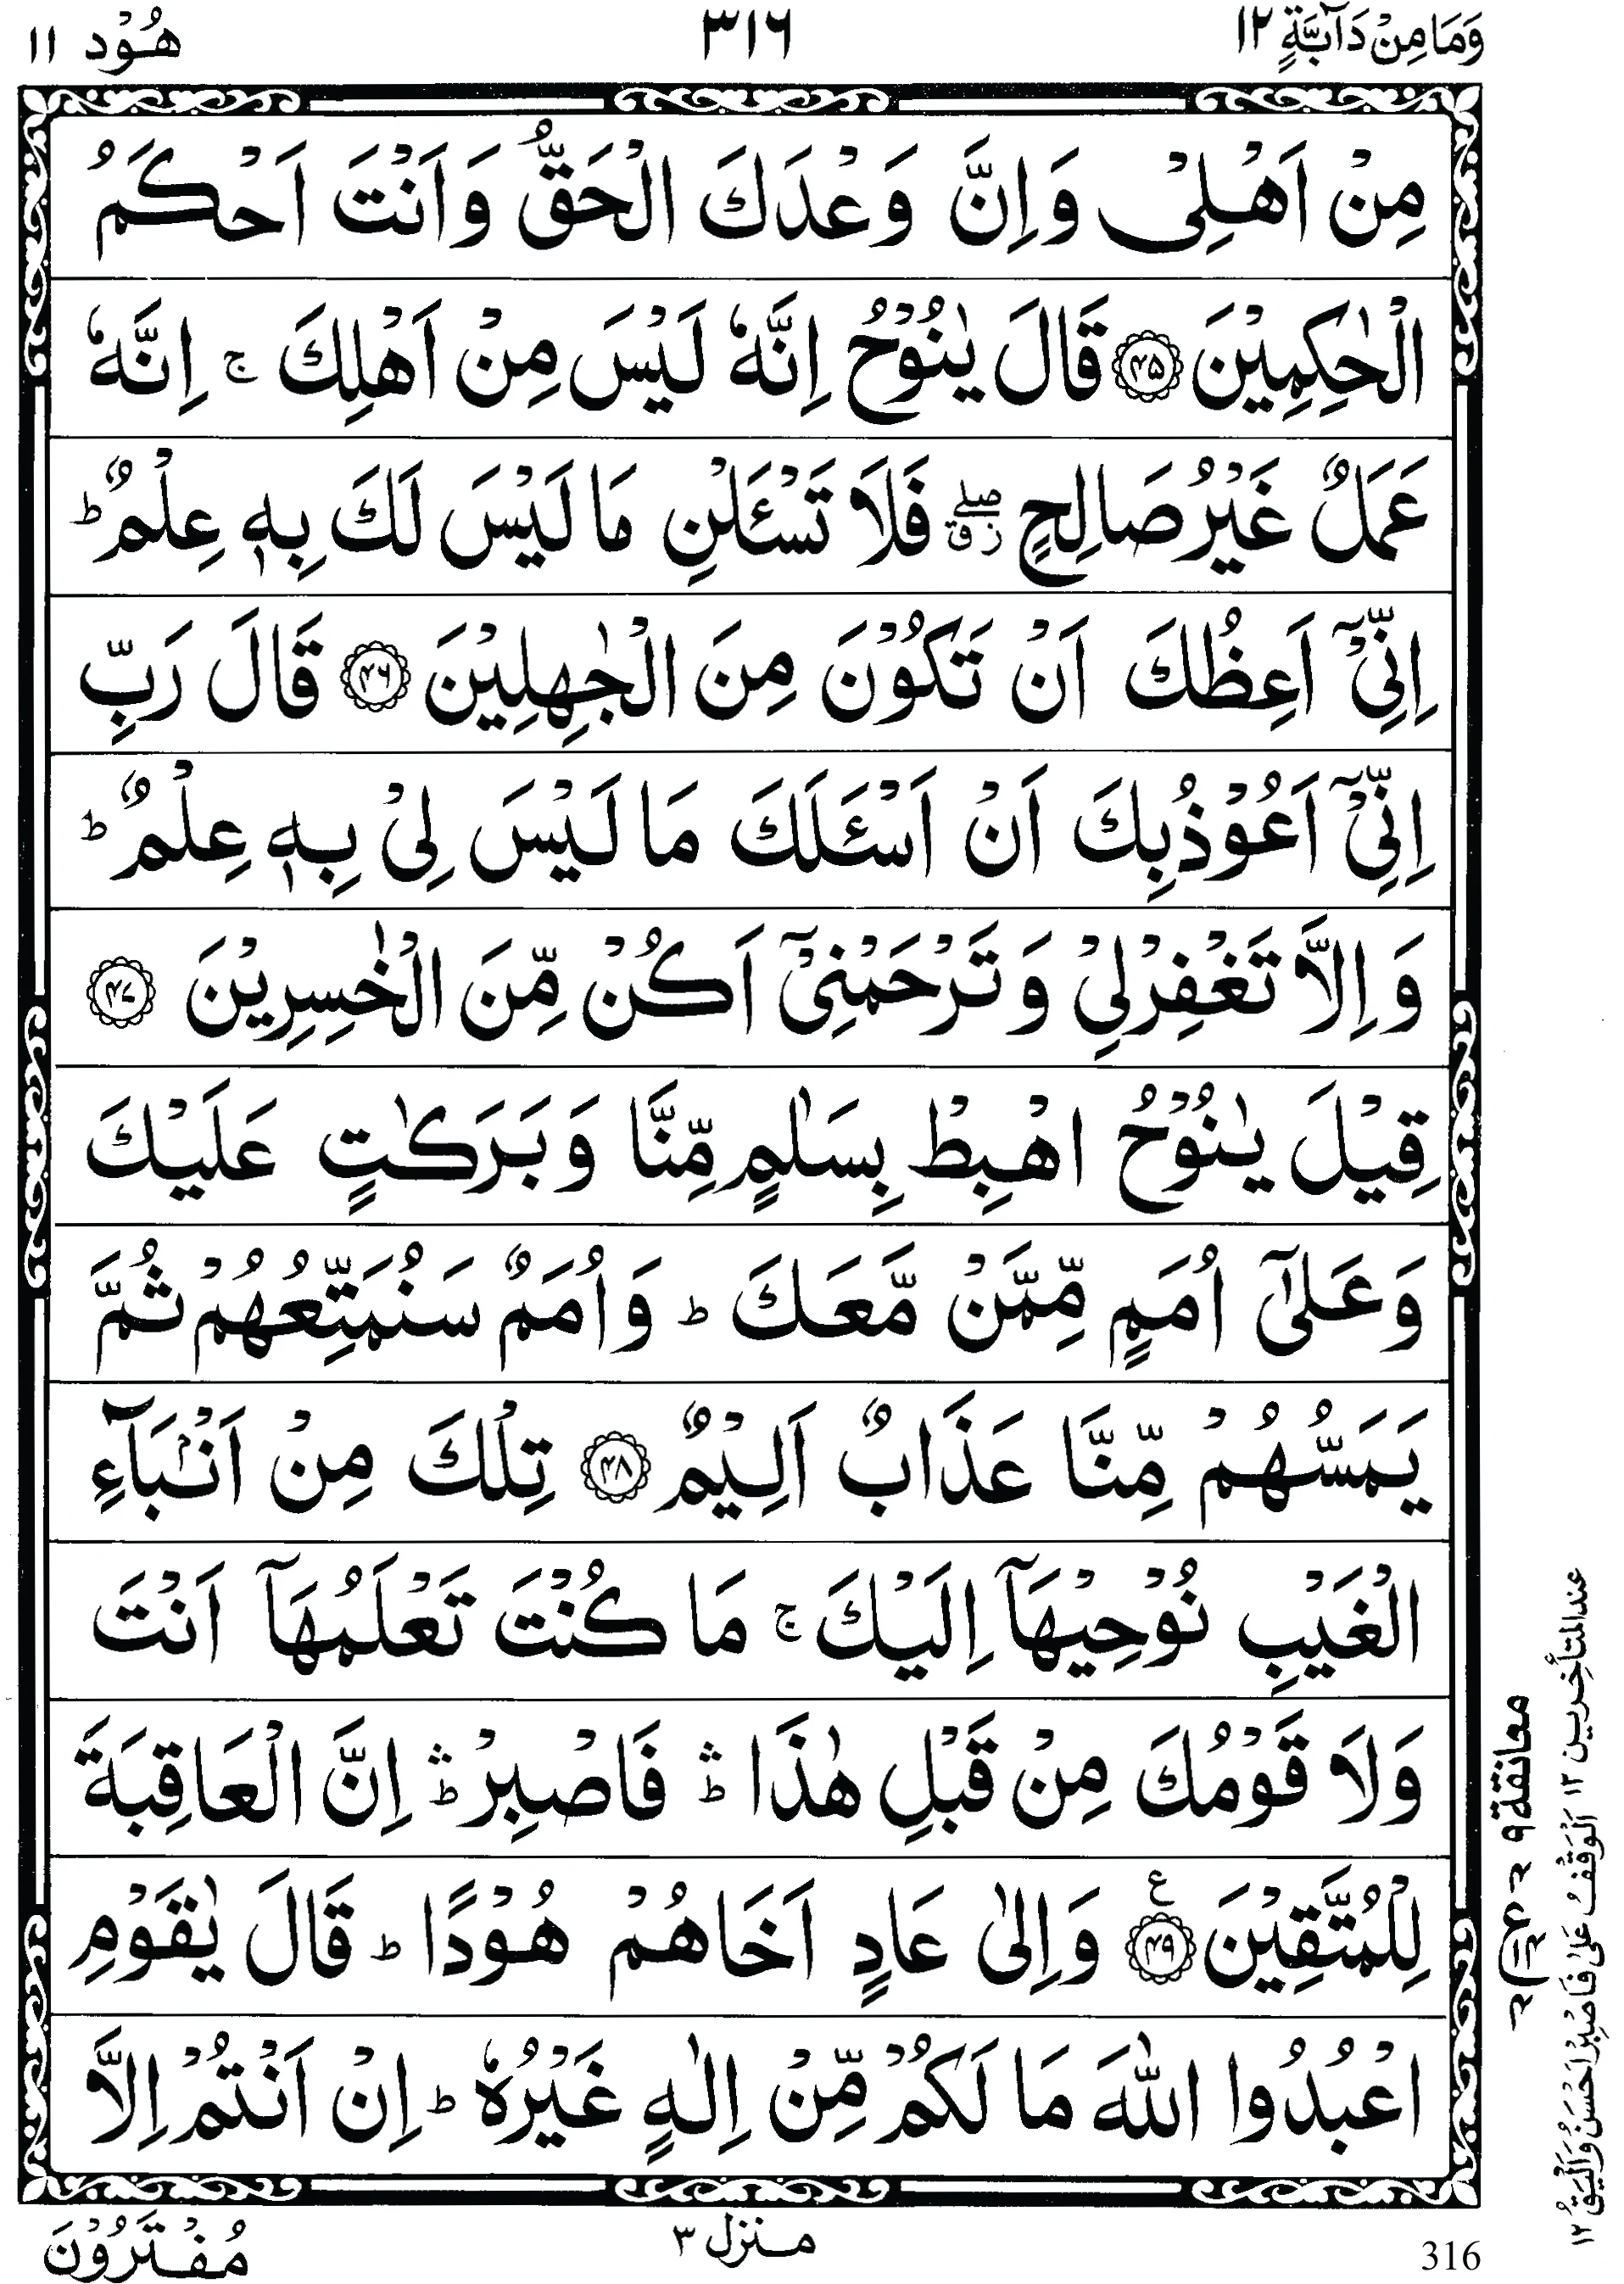 وَمَا مِنْ دَآبَّةٍ ١٢
٣١٦
هُوْد ١١
مِنْ اَهْلِيْ وَاِنَّ وَعْدَكَ الْحَقُّ وَاَنْتَ اَحْكَمُ
الْحٰكِمِيْنَ ﴿۴۵﴾ قَالَ يٰنُوْحُ اِنَّهٗ لَيْسَ مِنْ اَهْلِكَ ۚ اِنَّهٗ
عَمَلٌ غَيْرُ صَالِحٍ ۖ ز ق فَلَا تَسْـَٔلْنِ مَا لَيْسَ لَكَ بِهٖ عِلْمٌ ؕ
اِنِّيْۤ اَعِظُكَ اَنْ تَكُوْنَ مِنَ الْجٰهِلِيْنَ ﴿۴۶﴾ قَالَ رَبِّ
اِنِّيْۤ اَعُوْذُ بِكَ اَنْ اَسْـَٔلَكَ مَا لَيْسَ لِيْ بِهٖ عِلْمٌ ؕ
وَاِلَّا تَغْفِرْ لِيْ وَتَرْحَمْنِيْۤ اَكُنْ مِّنَ الْخٰسِرِيْنَ ﴿۴۷﴾
قِيْلَ يٰنُوْحُ اهْبِطْ بِسَلٰمٍ مِّنَّا وَبَرَكٰتٍ عَلَيْكَ
وَعَلٰۤى اُمَمٍ مِّمَّنْ مَّعَكَ ؕ وَاُمَمٌ سَنُمَتِّعُهُمْ ثُمَّ
يَمَسُّهُمْ مِّنَّا عَذَابٌ اَلِيْمٌ ﴿۴۸﴾ تِلْكَ مِنْ اَنْۢبَآءِ
الْغَيْبِ نُوْحِيْهَاۤ اِلَيْكَ ۚ مَا كُنْتَ تَعْلَمُهَاۤ اَنْتَ
وَلَا قَوْمُكَ مِنْ قَبْلِ هٰذَا ۛؕ فَاصْبِرْ ۛؕ اِنَّ الْعَاقِبَةَ
لِلْمُتَّقِيْنَ ﴿۴۹﴾ ع وَاِلٰى عَادٍ اَخَاهُمْ هُوْدًا ؕ قَالَ يٰقَوْمِ
اعْبُدُوا اللّٰهَ مَا لَكُمْ مِّنْ اِلٰهٍ غَيْرُهٗ ؕ اِنْ اَنْتُمْ اِلَّا
مُفْتَرُوْنَ
منزل ٣
316
معانقة ٩
عند المتأخرين ١٢ اَلْوَقْفُ عَلٰى فَاصْبِرْ اَحْسَنُ وَاَلْيَقُ ١٢